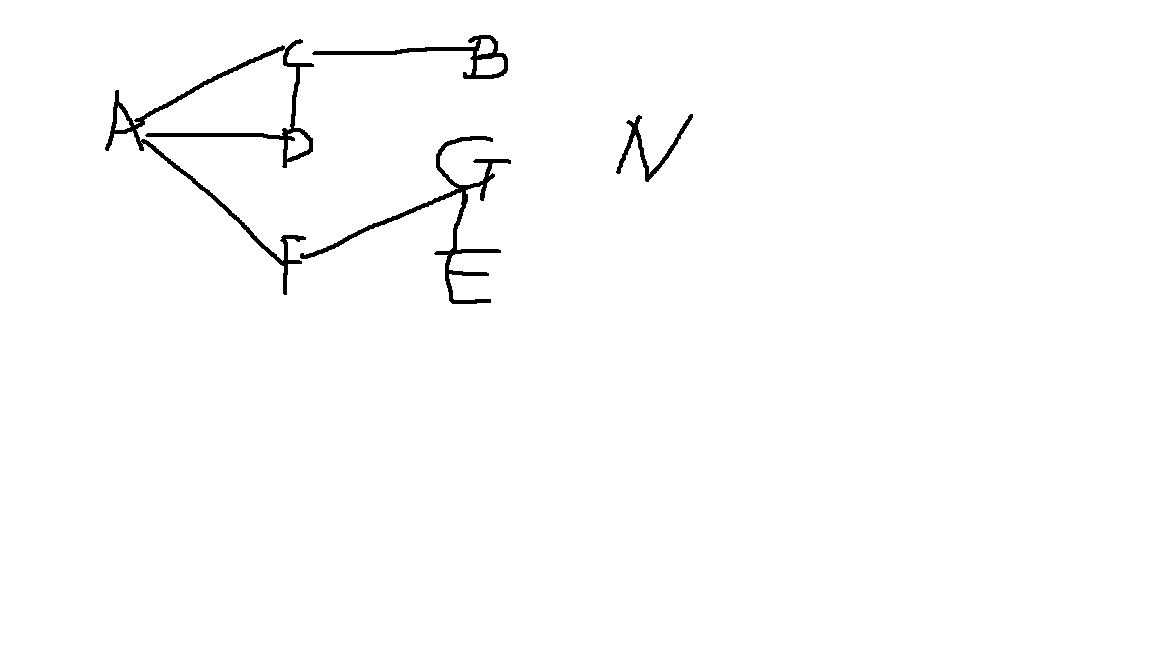 C B
A D G N
F E